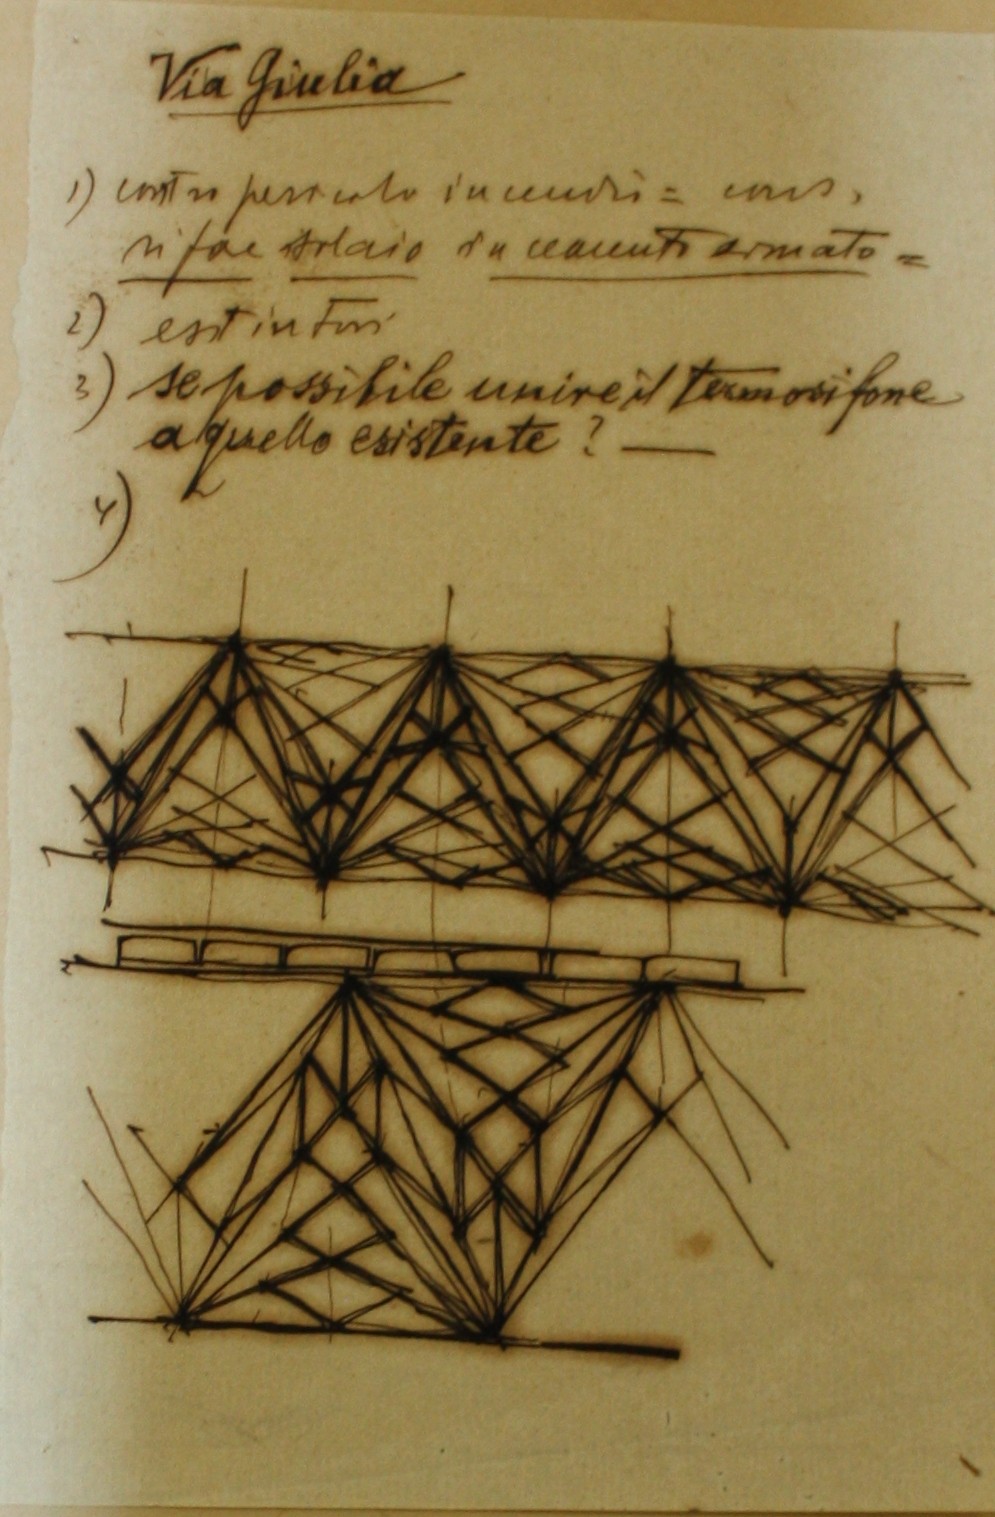 Via Giulia
1) contro pericolo incendi = cons.
si fae solaio in cemento armato =
2) estintori
3) se possibile unire il termosifone
a quello esistente ? —
4)